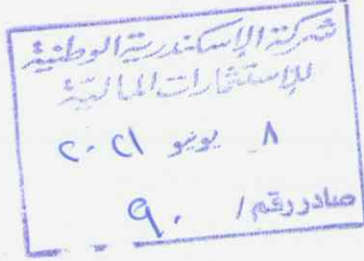 شركة الإسكندرية الوطنية
للإستثمارات المالية
٨ يونيو ٢٠٢١
صادر رقم / ٩٠